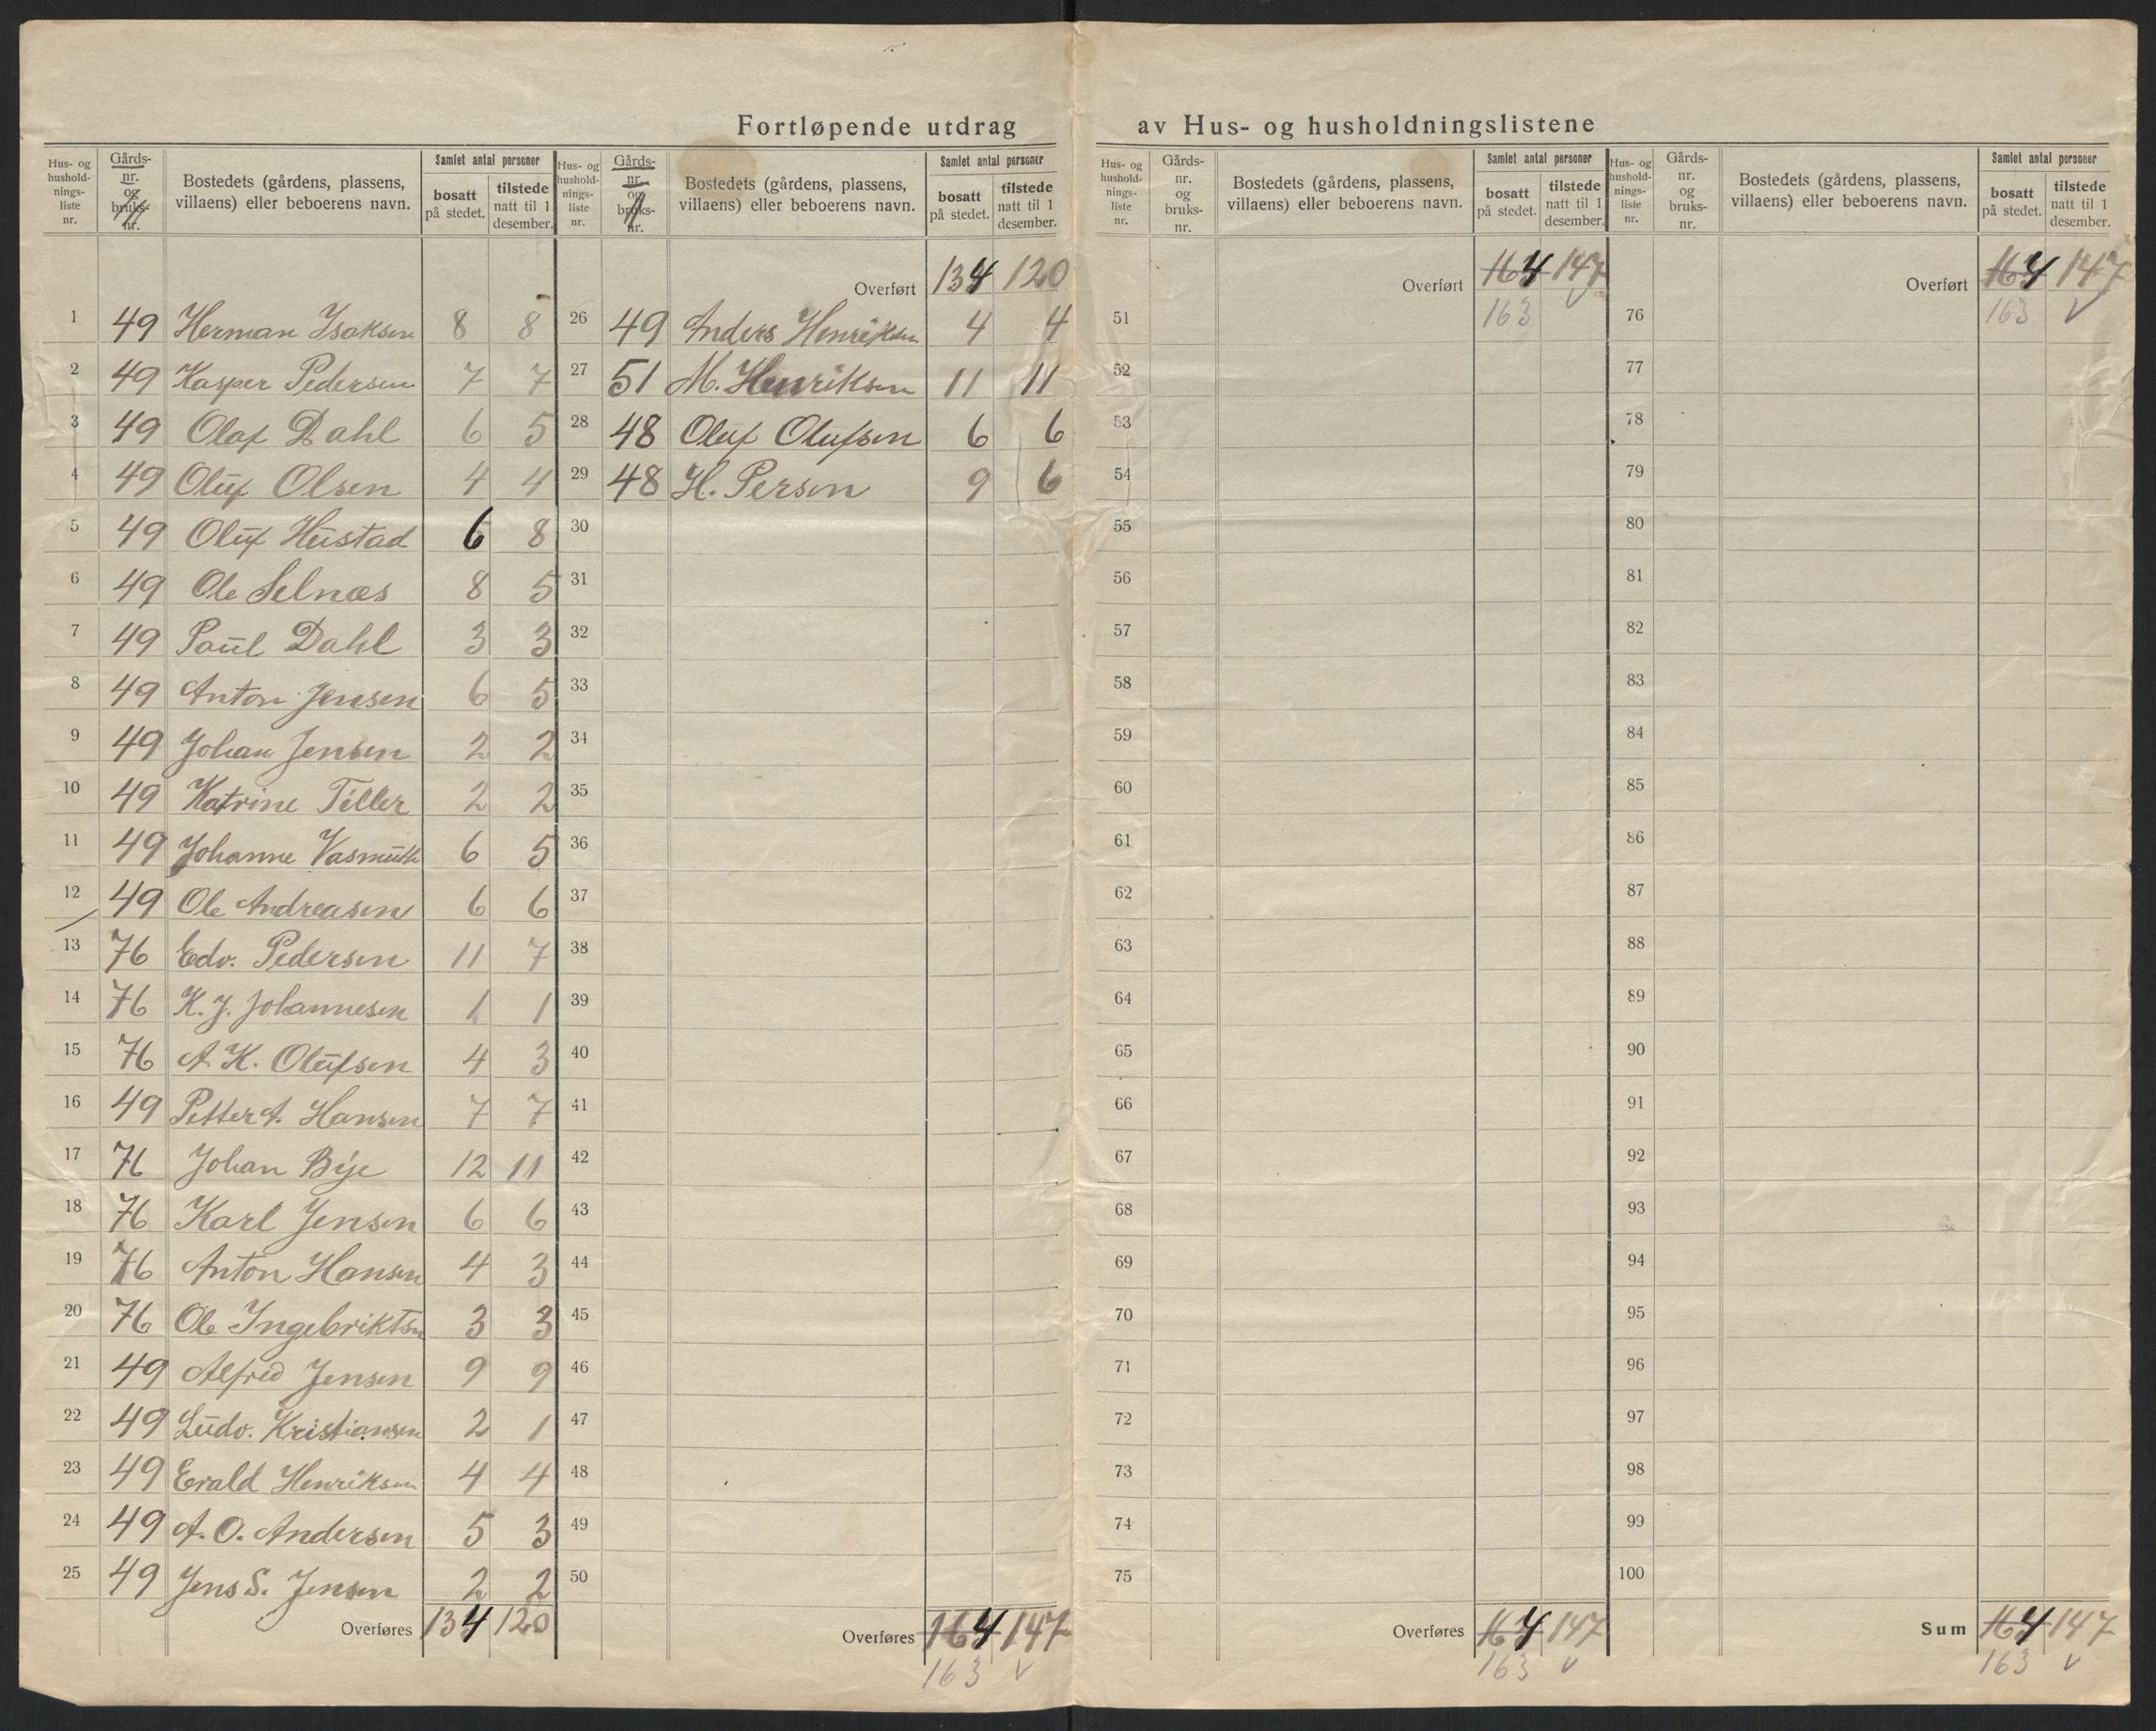 Fortløpende utdrag av Hus- og husholdningslistene
Hus- og hushold- nings- liste nr. Gårds- nr. og bruks- nr. Bostedets (gårdens, plassens, villaens) eller beboerens navn. Samlet antal personer bosatt på stedet. tilstede natt til 1 desember.
Hus- og hushold- nings- liste nr. Gårds- nr. og bruks- nr. Bostedets (gårdens, plassens, villaens) eller beboerens navn. Samlet antal personer bosatt på stedet. tilstede natt til 1 desember.
Hus- og hushold- nings- liste nr. Gårds- nr. og bruks- nr. Bostedets (gårdens, plassens, villaens) eller beboerens navn. Samlet antal personer bosatt på stedet. tilstede natt til 1 desember.
Hus- og hushold- nings- liste nr. Gårds- nr. og bruks- nr. Bostedets (gårdens, plassens, villaens) eller beboerens navn. Samlet antal personer bosatt på stedet. tilstede natt til 1 desember.
1 49 Herman Isaksen 8 8
2 49 Kasper Pedersen 7 7
3 49 Olaf Dahl 6 5
4 49 Oluf Olsen 4 4
5 49 Oluf Hustad 6 8
6 49 Ole Selnæs 8 5
7 49 Paul Dahl 3 3
8 49 Anton Jensen 6 5
9 49 Johan Jensen 2 2
10 49 Katrine Tiller 2 2
11 49 Johanne Vasmuth 6 5
12 49 Ole Andreasen 6 6
13 76 Edv. Pedersen 11 7
14 76 K. J. Johannesen 1 1
15 76 A. K. Olufsen 4 3
16 49 Petter A. Hansen 7 7
17 76 Johan Bye 12 11
18 76 Karl Jensen 6 6
19 76 Anton Hansen 4 3
20 76 Ole Ingebriktsn 3 3
21 49 Alfred Jensen 9 9
22 49 Ludv. Kristiansen 2 1
23 49 Evald Henriksen 4 4
24 49 A. O. Andersen 5 3
25 49 Jens S. Jensen 2 2
Overføres 134 120
Overført 134 120
26 49 Anders Henriksen 4 4
27 51 M. Henriksen 11 11
28 48 Oluf Olufsen 6 6
29 48 H. Persen 9 6
30
31
32
33
34
35
36
37
38
39
40
41
42
43
44
45
46
47
48
49
50
Overføres 164 147
163 v
Overført 164 147
163 v
51
52
53
54
55
56
57
58
59
60
61
62
63
64
65
66
67
68
69
70
71
72
73
74
75
Overføres 164 147
163 v
Overført 164 147
163 v
76
77
78
79
80
81
82
83
84
85
86
87
88
89
90
91
92
93
94
95
96
97
98
99
100
Sum 164 147
163 v